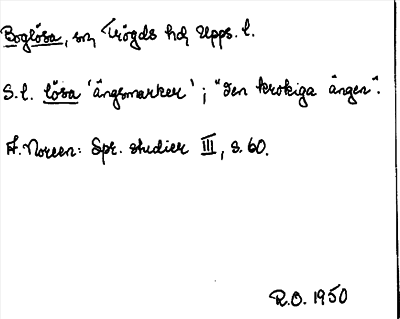 Boglösa, sn, Trögds hd, Upps. l.
S. l. lösa 'ängsmarker'; "den krokiga ängen".
A. Noreen: Spr. studier III, s. 60.
R.O. 1950